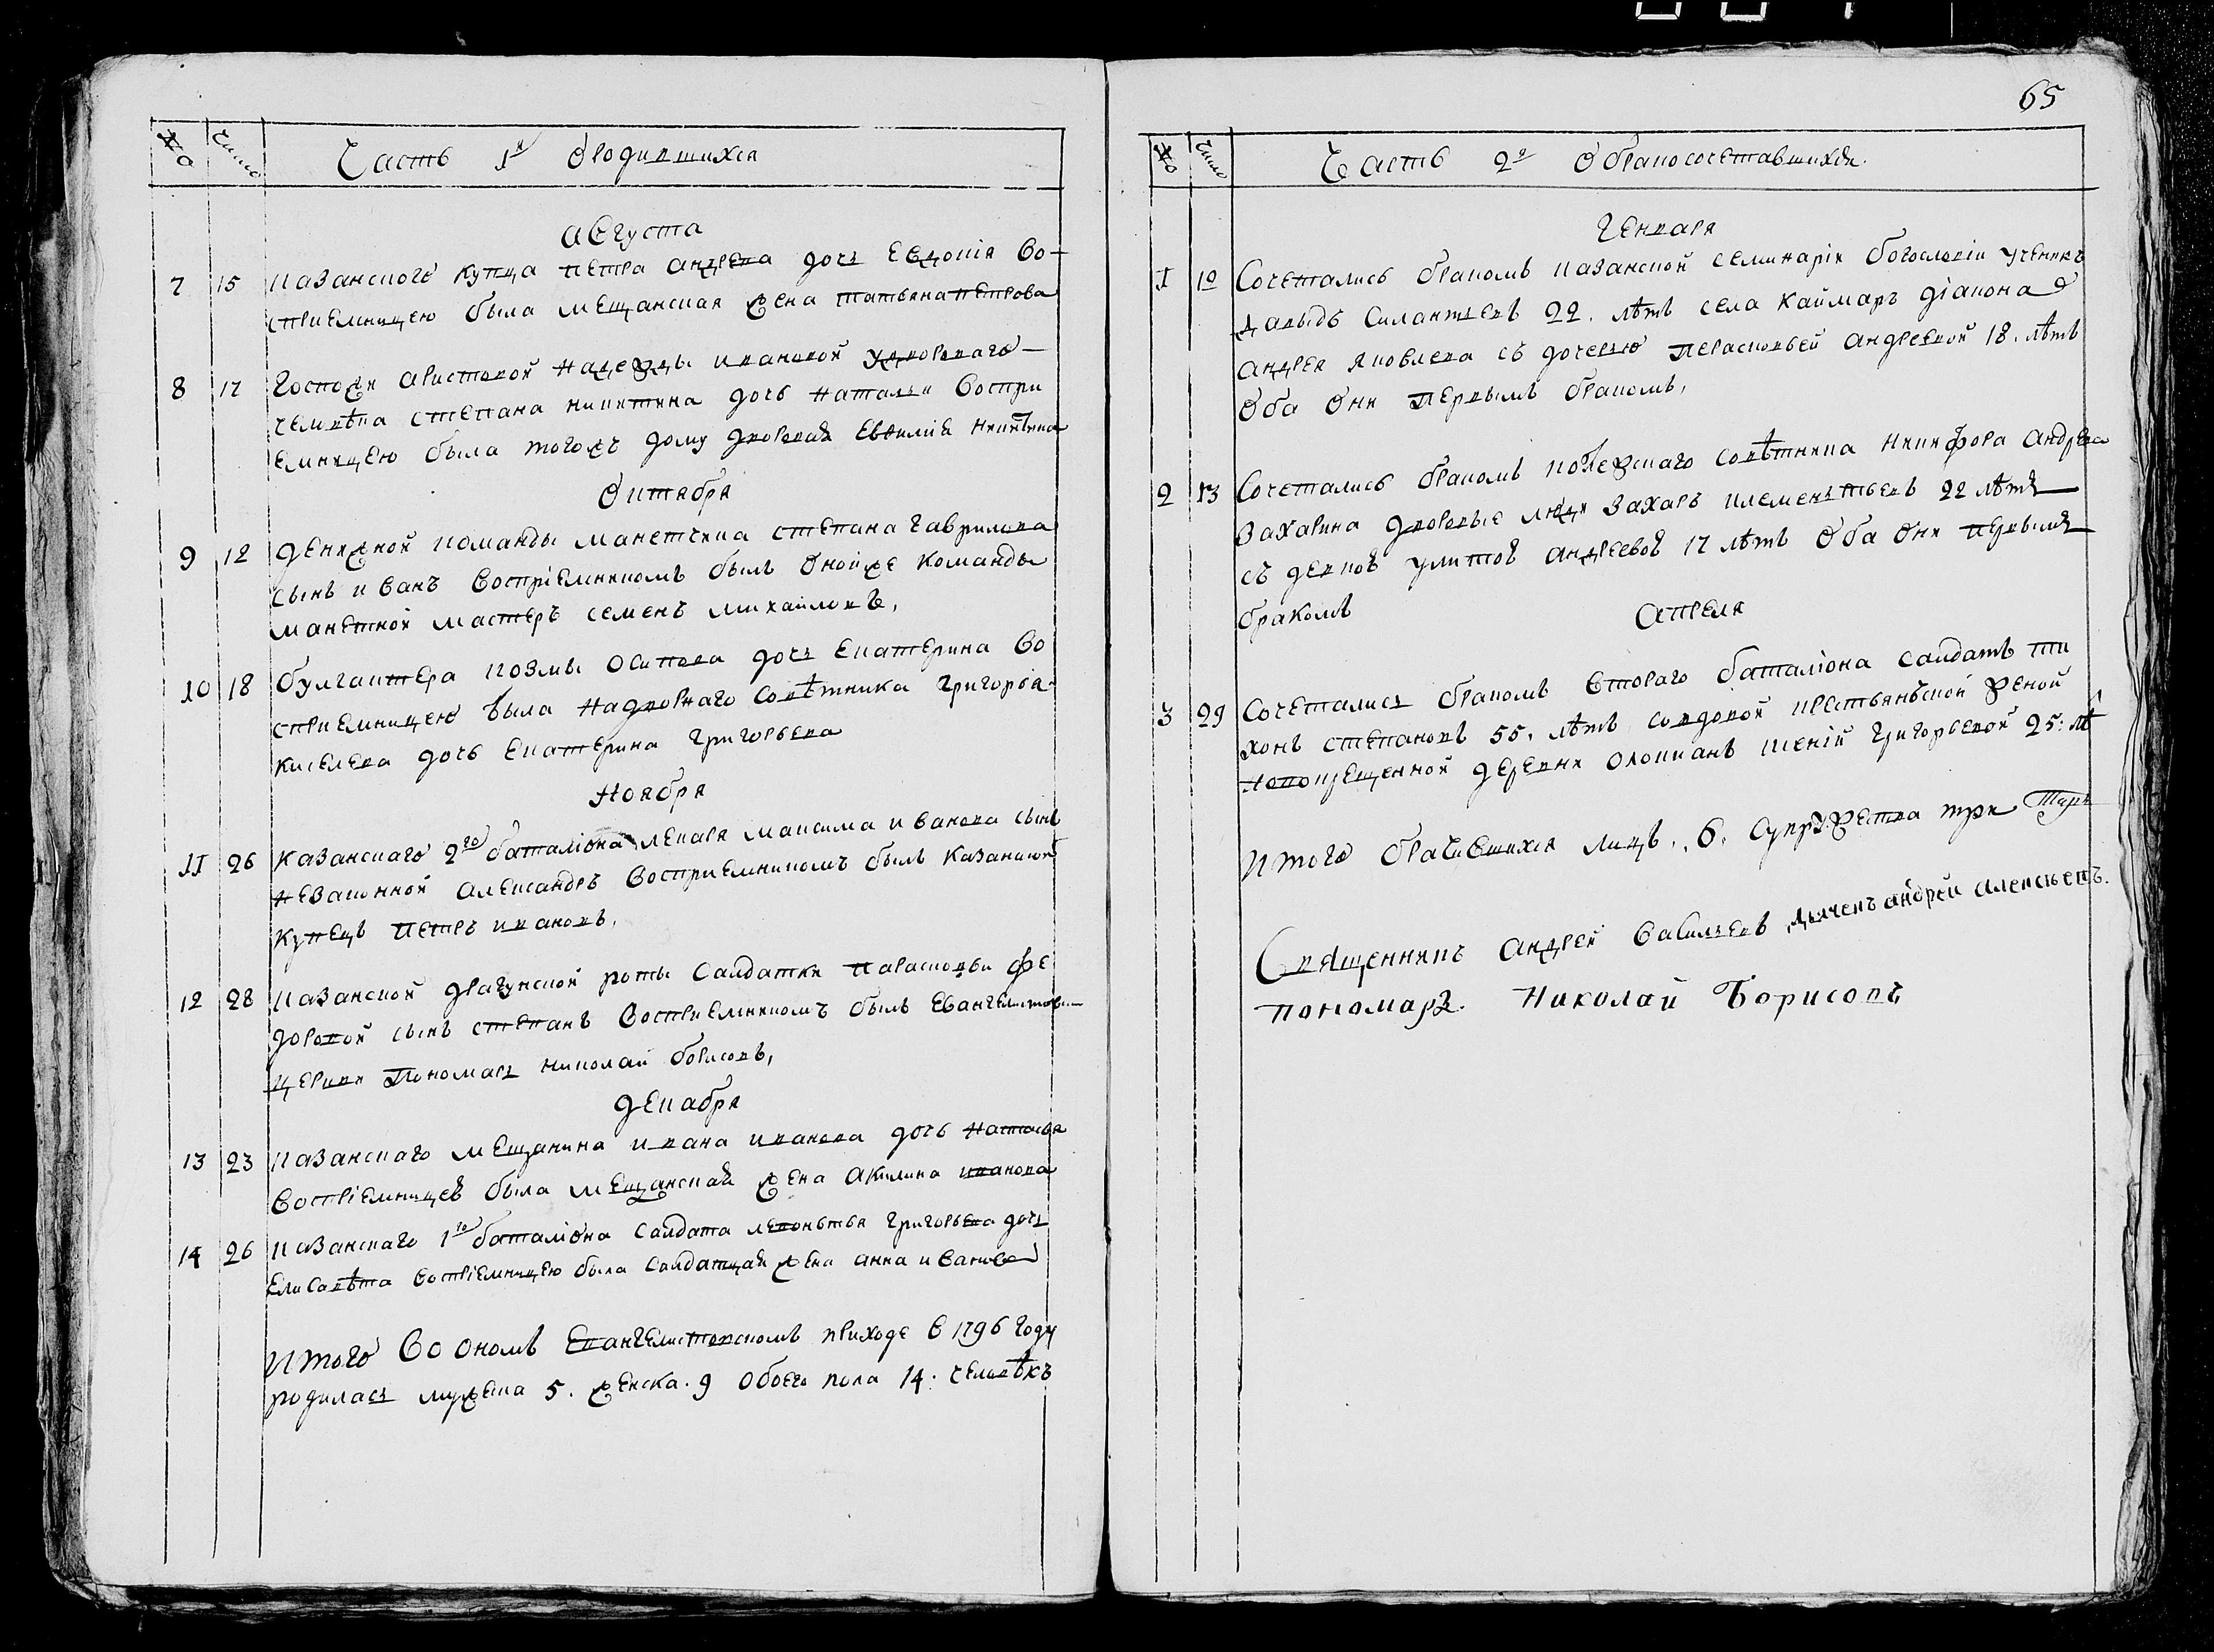 65
№ Число Часть 1я О родившихся
Августа
7 15 Казанского купца Петра Андреева дочь Евдокия во-
сприемницею была мещанская жена Татьяна Петрова
8 17 Госпожи Аристовой Надежды Ивановой дворового
человека Степана Никитина дочь Наталья воспри
емницею была того жъ дому дворовая Евфимия Никитина
Октября
9 12 Денежной команды манетчика Степана Гаврилова
сынъ Иванъ воспріемникомъ былъ оной же команды
манетной мастеръ Семенъ Михайловъ,
10 18 Булгантера Козмы Осипова дочь Екатерина во
сприемницею была надворнаго совѣтника Григорья
Киселева дочь Екатерина Григорьева
Ноября
11 26 Казанскаго 2го баталіона лекаря Максима Иванова сынъ
незаконной Александръ восприемникомъ былъ казанской
купецъ Петръ Ивановъ,
12 28 Казанской драгунской роты салдатки Парасковьи Фе
доровой сынъ Степанъ восприемникомъ былъ Евангелистов-
церкви пономарь Николай Борисовъ,
Декабря
13 23 Казанскаго мещанина Ивана Иванова дочь Наталья
воспріемницей была мещанская жена Акилина Иванова
14 26 Казанскаго 1го баталіона салдата Леонтья Григорьева дочь
Елисавѣта воспріемницею была салдатская жена Анна Иванова
Итого во ономъ Евангелистовскомъ приходе в 1796 году
родилась мужеска 5. женска. 9 обоего пола 14. человѣкъ
№ Число Часть 2я О бракосочетавшихся.
Генваря
1 10 Сочетались бракомъ Казанской семинаріи богословіи ученикъ
Давыдъ Силантьевъ 22. лѣтъ села Каймаръ діакона
Андрея Яковлева съ дочерью Перасковьей Андреевой 18. лѣтъ
оба они первымъ бракомъ,
2 13 Сочетались бракомъ колежскаго совѣтника Никифора Андреева
Захарина дворовые люди Захаръ Клементьевъ 22 лѣтъ
съ девкой Улитой Андреевой 17 лѣтъ оба они первымъ
бракомъ
Апреля
3 29 Сочетались бракомъ втораго баталіона салдатъ Ти
хонъ Степановъ 55. лѣтъ со вдовой крестьянской женой
новокрещенной деревни Ксеніей Григорьевой 25. лѣ
Итого брачившихся лицъ. 6. супружества три
Священникъ Андрей Васильевъ дьяченъ андрей алексеевъ.
пономарь. Николай Борисовъ